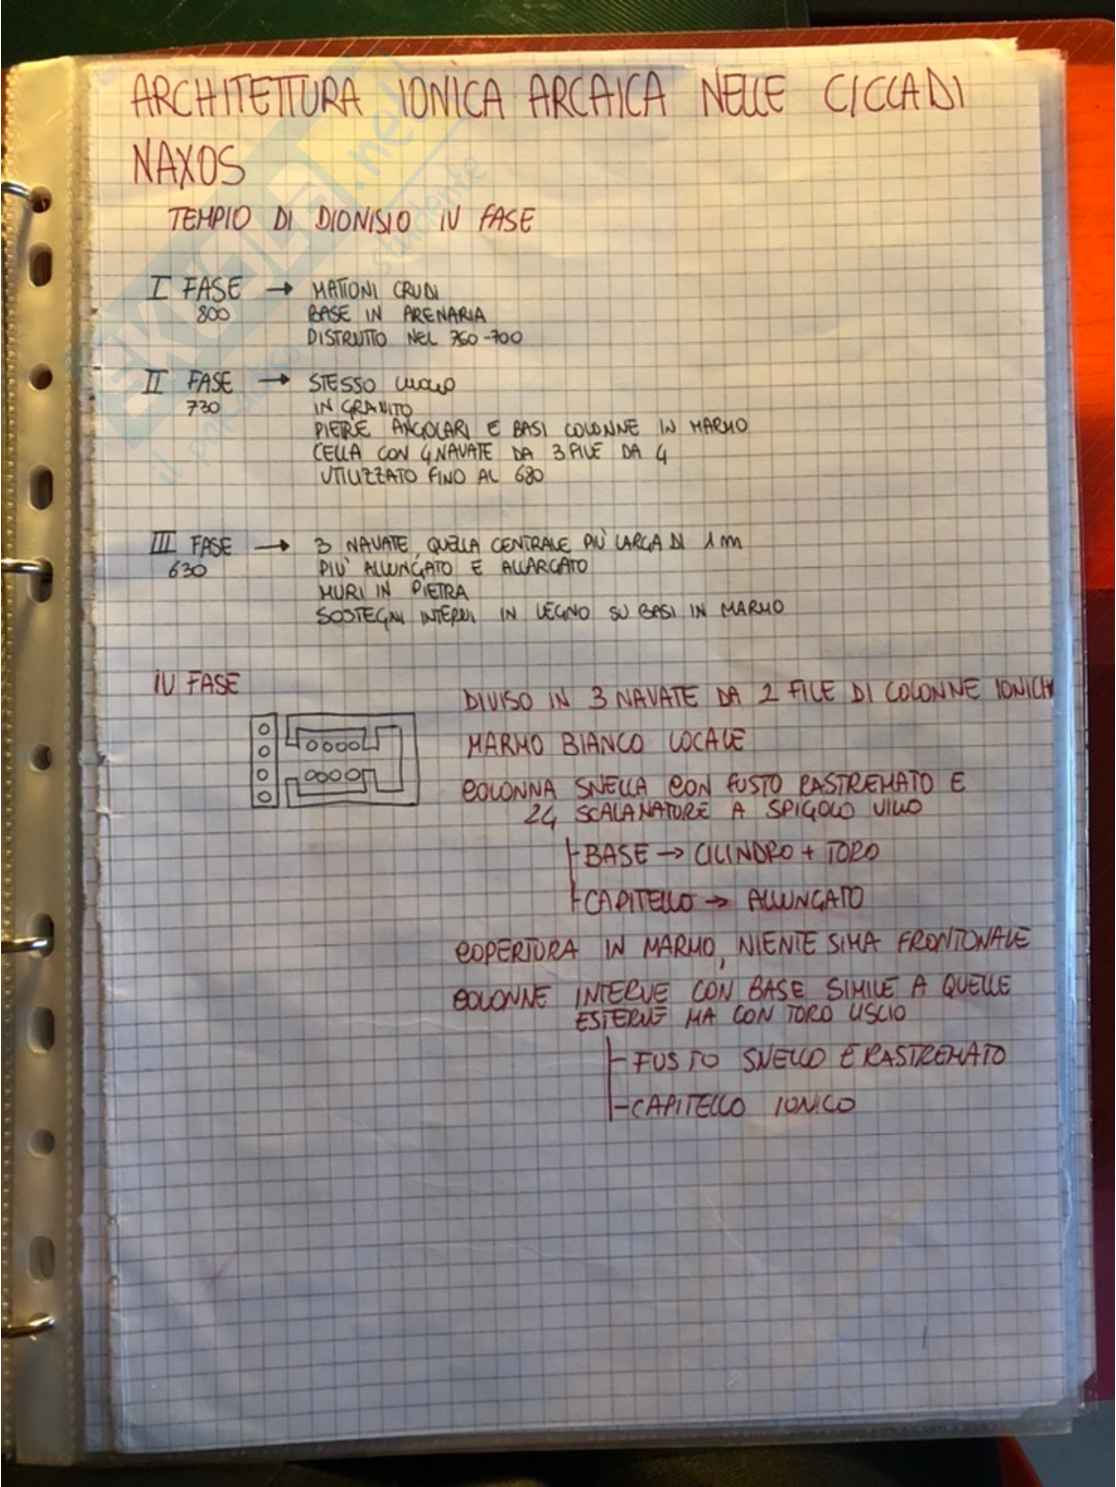 ARCHITETTURA IONICA ARCAICA NELLE CICLADI
NAXOS
TEMPIO DI DIONISIO IV FASE
I FASE → MATTONI CRUDI
800 BASE IN ARENARIA
DISTRUTTO NEL 750-700
II FASE → STESSO LUOGO
730 IN GRANITO
PIETRE ANGOLARI E BASI COLONNE IN MARMO
CELLA CON 4 NAVATE DA 3 FILE DA 4
UTILIZZATO FINO AL 680
III FASE → 3 NAVATE, QUELLA CENTRALE PIÙ LARGA DI 1 m
630 PIÙ ALLUNGATO E ALLARGATO
MURI IN PIETRA
SOSTEGNI INTERNI IN LEGNO SU BASI IN MARMO
IV FASE
DIVISO IN 3 NAVATE DA 2 FILE DI COLONNE IONICHE
MARMO BIANCO LOCALE
COLONNA SNELLA CON FUSTO RASTREMATO E
24 SCALANATURE A SPIGOLO VIVO
BASE → CILINDRO + TORO
CAPITELLO → ALLUNGATO
COPERTURA IN MARMO, NIENTE SIMA FRONTONALE
COLONNE INTERNE CON BASE SIMILE A QUELLE
ESTERNE MA CON TORO LISCIO
FUSTO SNELLO E RASTREMATO
CAPITELLO IONICO